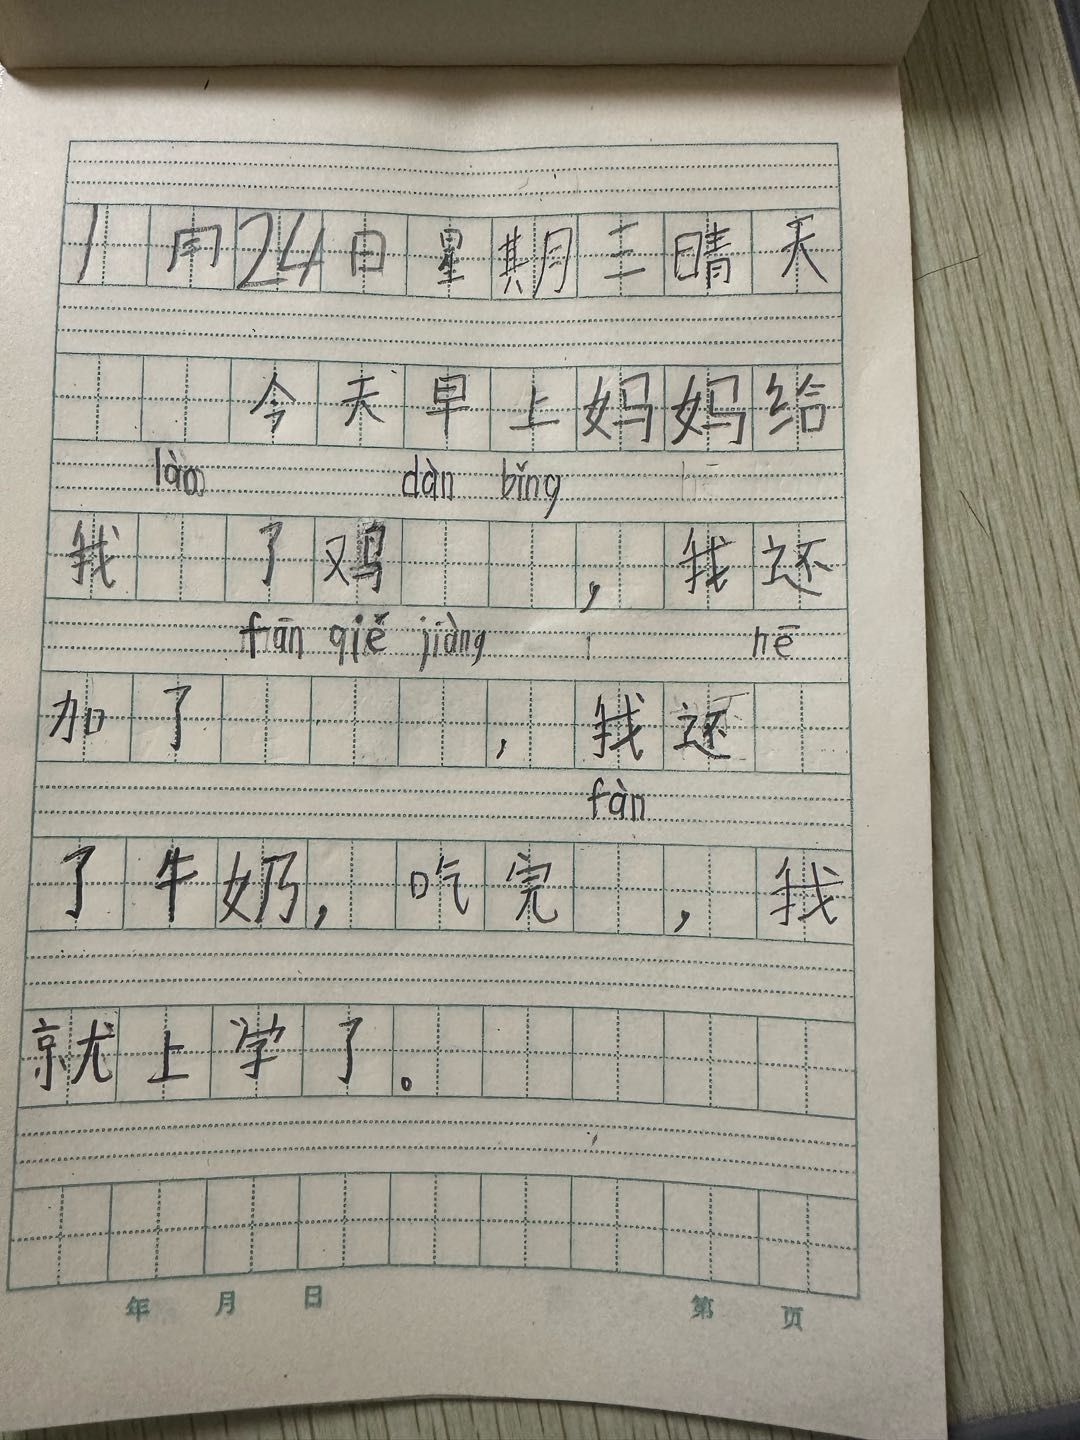 1月24日星期三晴天
今天早上妈妈给
lào dàn bǐng
我 了鸡 ，我还
fān qiě jiàng hē
加了 ，我还
fàn
了牛奶，吃完 ，我
就上学了。
年 月 日 第 页